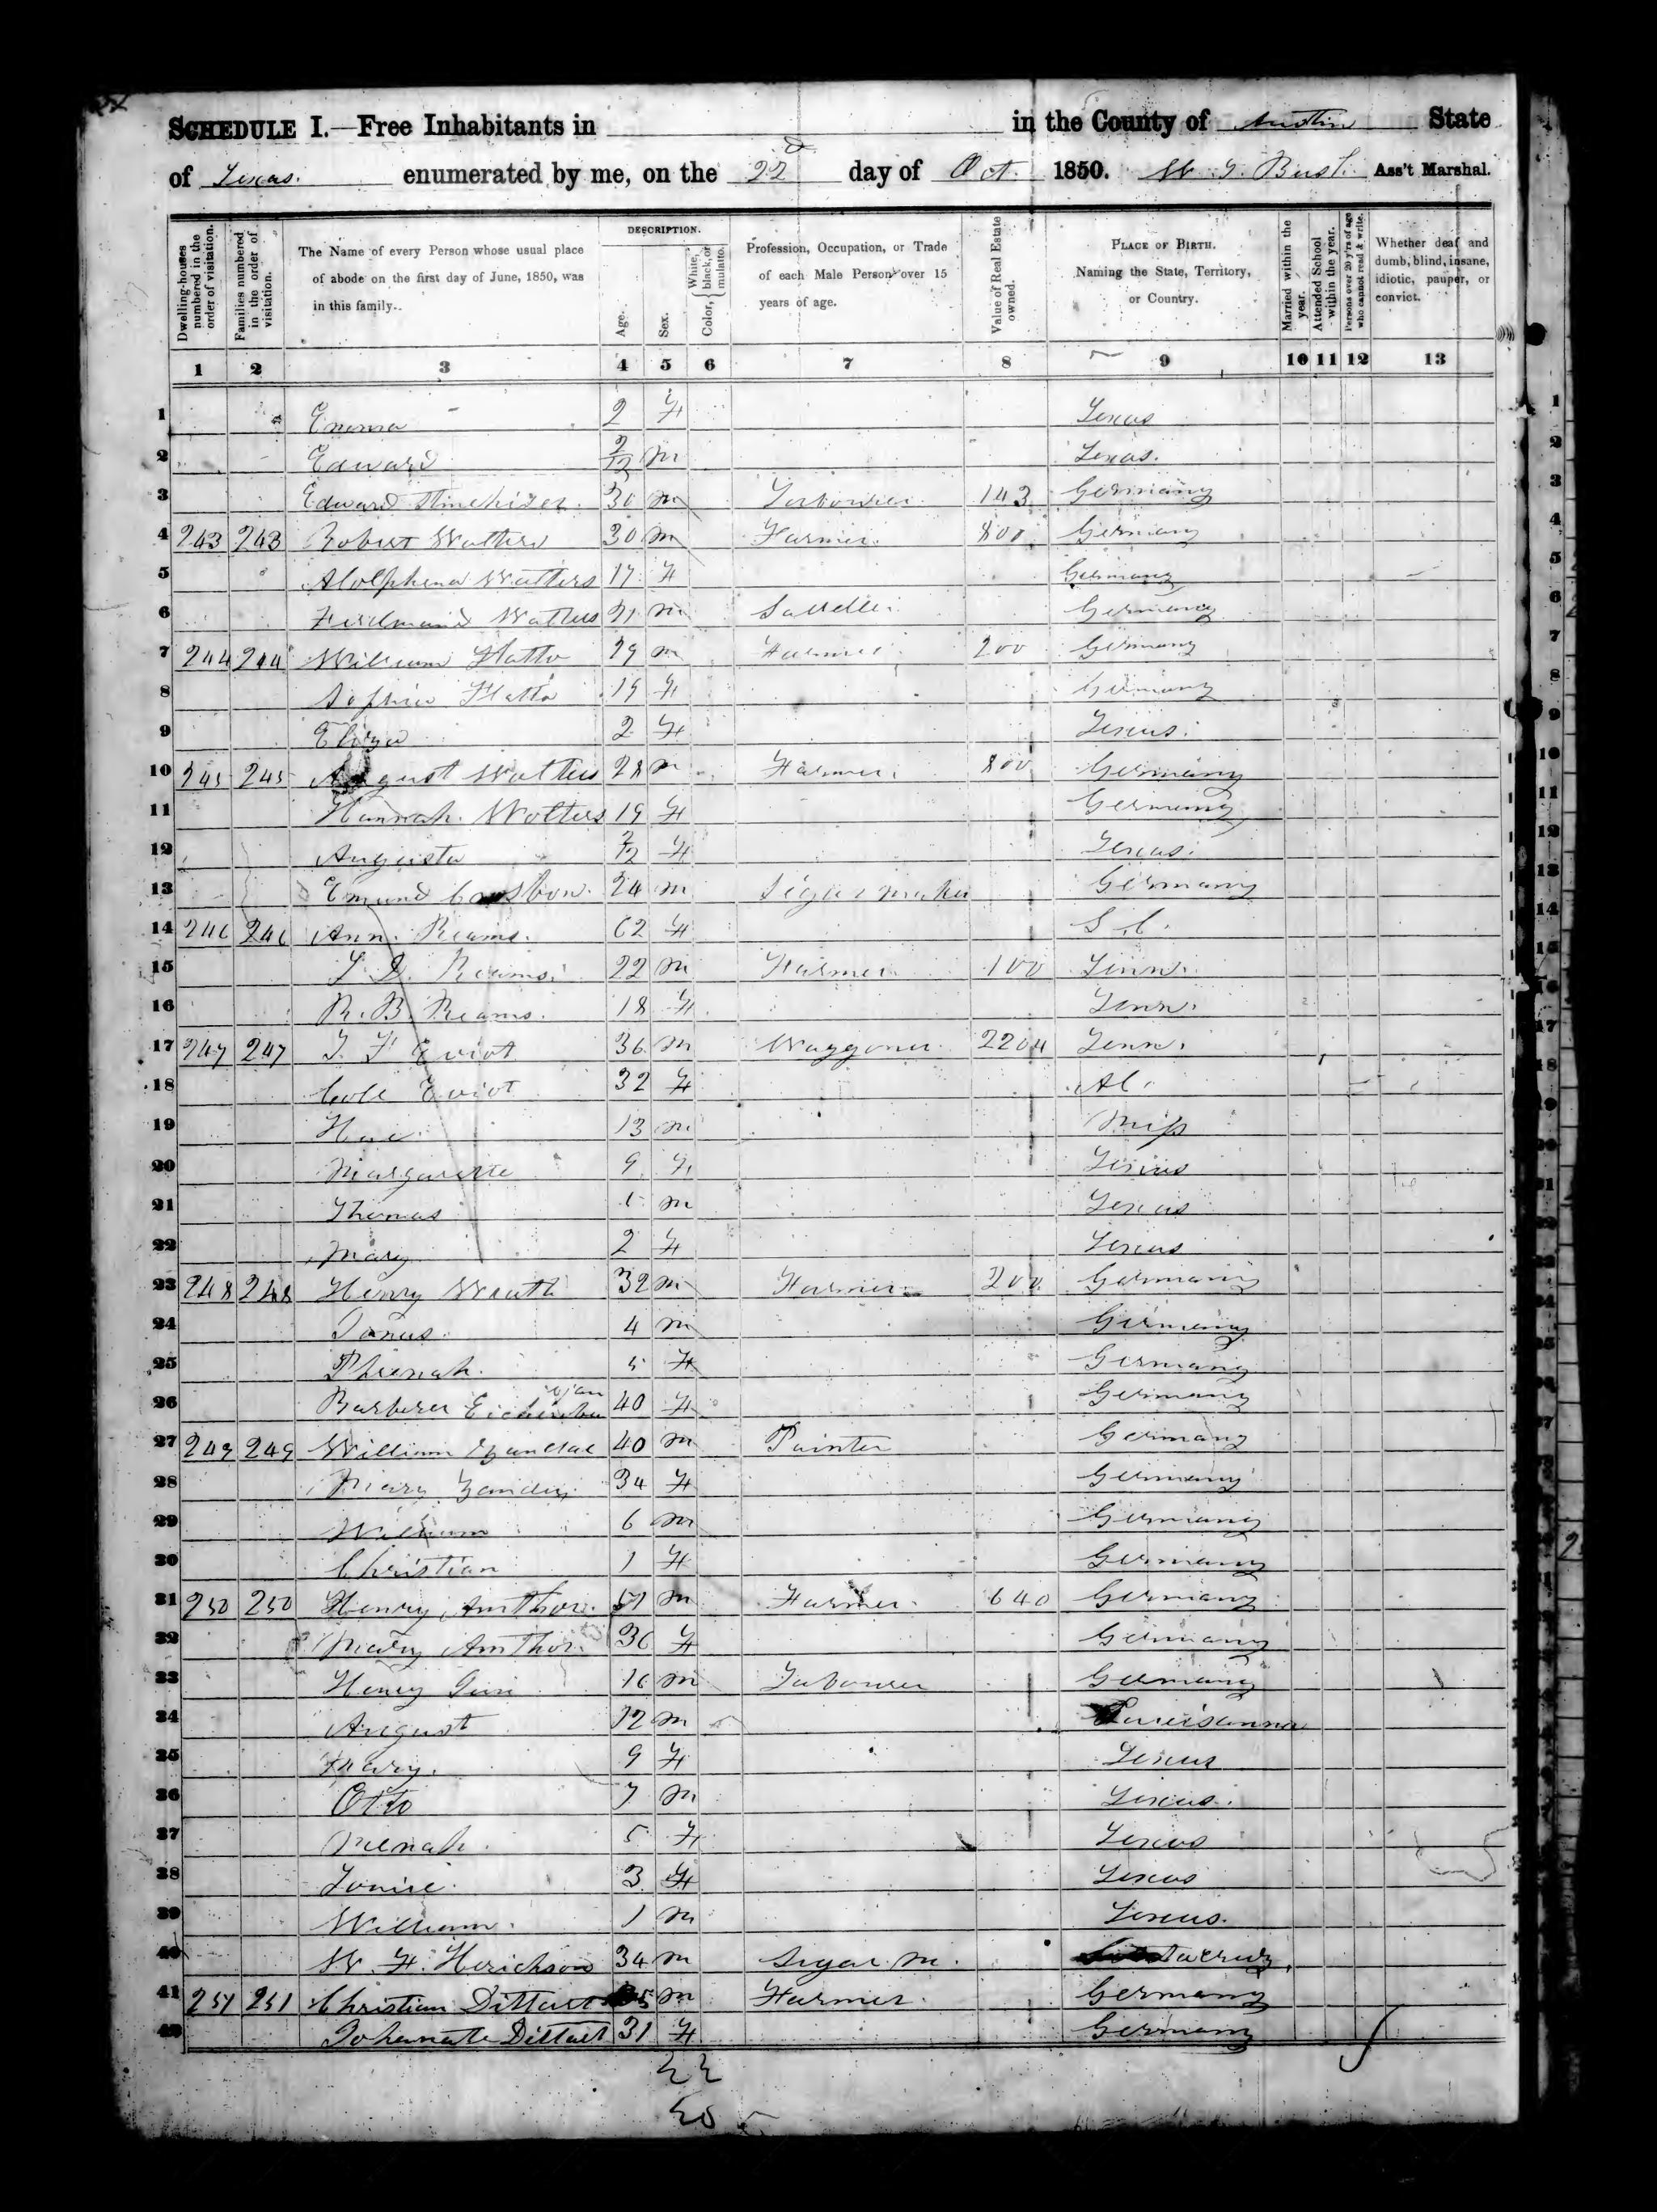 SCHEDULE I.—Free Inhabitants in in the County of Austin State
of Texas. enumerated by me, on the 22d day of Oct. 1850. Ass't Marshal.
Dwelling-houses numbered in the order of visitation.
Families numbered in the order of visitation.
The Name of every Person whose usual place of abode on the first day of June, 1850, was in this family.
DESCRIPTION.
Age.
Sex.
Color, { White, black, or mulatto.
Profession, Occupation, or Trade of each Male Person over 15 years of age.
Value of Real Estate owned.
PLACE OF BIRTH. Naming the State, Territory, or Country.
Married within the year.
Attended School within the year.
Persons over 20 y'rs of age who cannot read & write.
Whether deaf and dumb, blind, insane, idiotic, pauper, or convict.
1 2 3 4 5 6 7 8 9 10 11 12 13
1 Emma 2 F Texas
2 Edward 2/12 m Texas.
3 Edward 30 m Labourer 143 Germany
4 243 243 Robert Walters 30 m Farmer. 800 Germany
5 Adolphena Walters 17 F Germany
6 Ferdinand Walters 21 m Sadler Germany
7 244 244 William Flatto 29 m Farmer 200 Germany
8 Sophia Flatto 19 F Germany
9 Eliza 2 F Texas.
10 245 245 August Wolters 28 m Farmer. 800 Germany
11 Hannah. Wolters 19 F Germany
12 Augusta 2/12 F Texas.
13 Emund 24 m Segar maker Germany
14 246 246 Ann. Reams. 62 F S.C.
15 Reams. 22 m Farmer 100 Tenn.
16 R. B. Reams. 18 F Tenn.
17 247 247 Eviot 36 m Waggoner 2204 Tenn.
18 Eviot 32 F Al.
19 13 m Miss
20 Margarette 9 F Texas
21 Thomas m Texas
22 Mary 2 F Texas
23 248 248 Henry 32 m Farmer 200. Germany
24 4 m Germany
25 5 F Germany
26 Barbera 40 F Germany
27 249 249 William 40 m Painter Germany
28 Mary 34 F Germany
29 William 6 m Germany
30 Christian 1 F Germany
31 250 250 Henry Amthor. 51 m Farmer. 640 Germany
32 Mary Amthor. 36 F Germany
33 Henry Juni 16 m Labourer Germany
34 August 12 m Louisianna
35 Mary. 9 F Texas
36 Otto 7 m Texas.
37 5 F Texas
38 Louise. 3 F Texas
39 William. 1 m Texas.
40 W. F. Herickson 34 m Segar m.
41 251 251 Christian Dittart 35 m Farmer. Germany
42 Johanate Dittart 31 F Germany
22
20